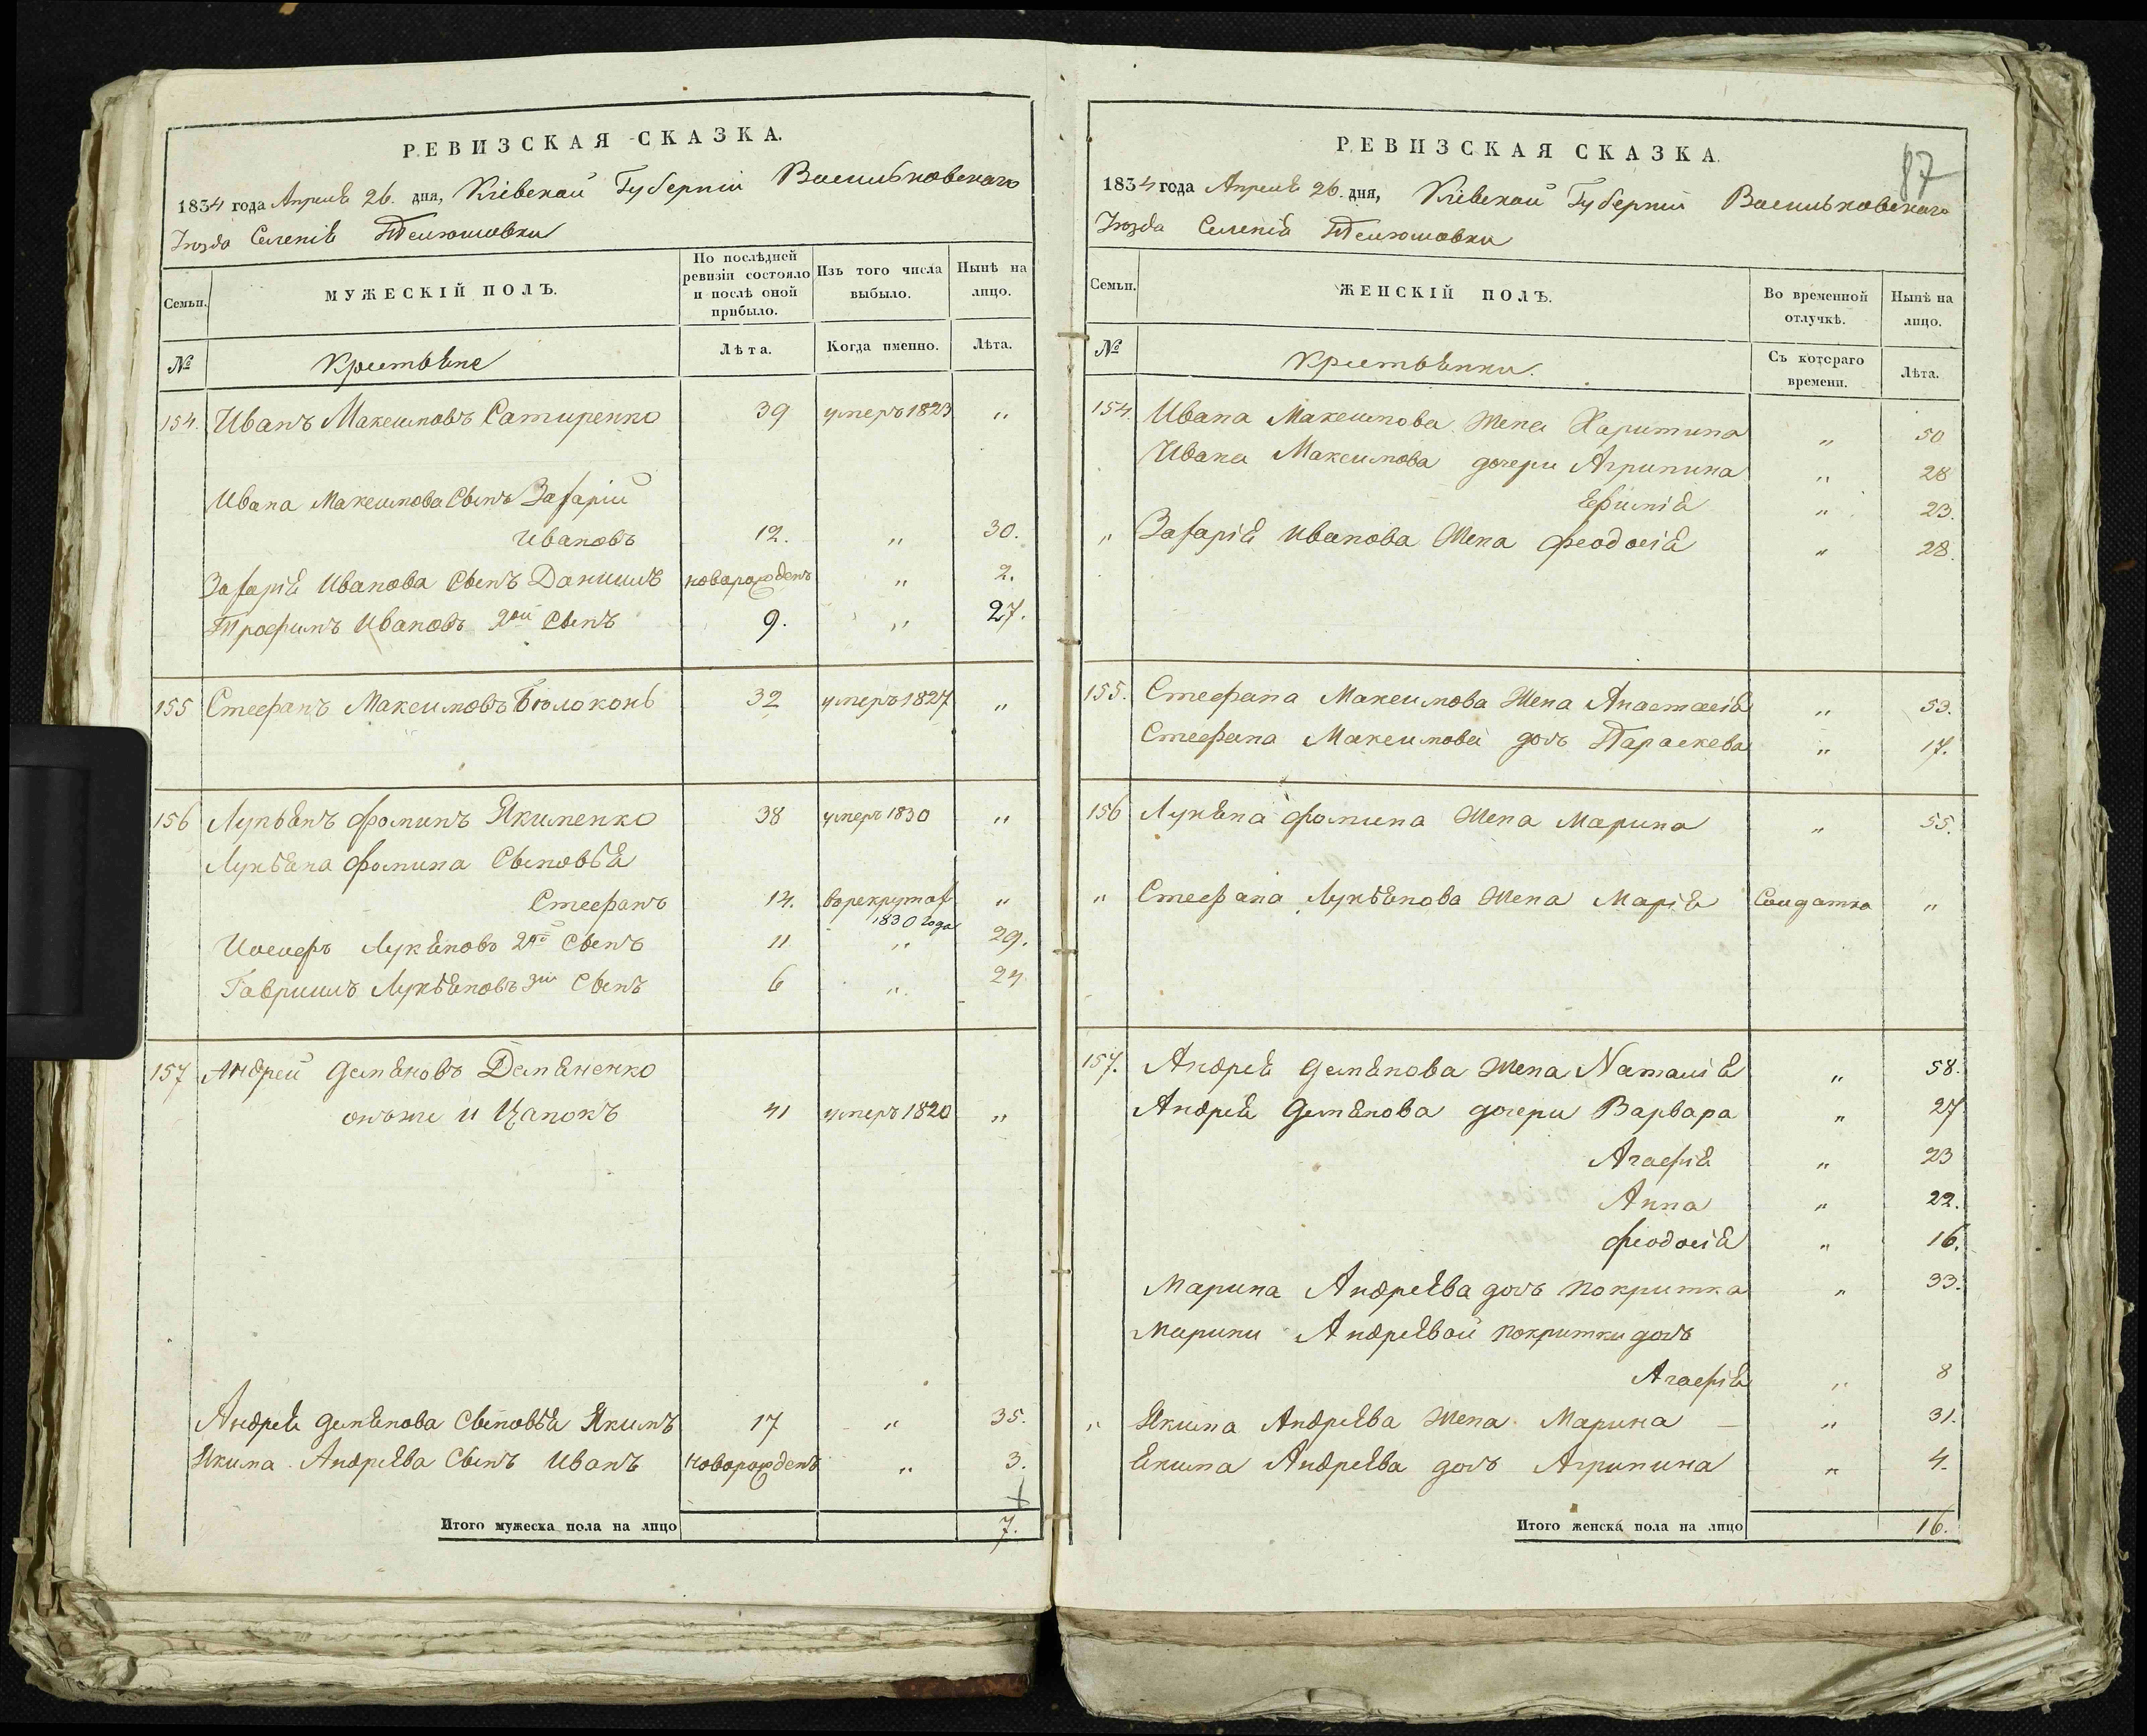 РЕВИЗСКАЯ СКАЗКА.
1834 года Апреля 26. дня, Кіевской Губерніи Васильковскаго
Уѣзда Селенія Телюшовки
Семьи.
МУЖЕСКІЙ ПОЛЪ.
По послѣдней ревизіи состояло и послѣ оной прибыло.
Изъ того числа выбыло.
Нынѣ на лицо.
№
Крестьяне
Лѣта.
Когда именно.
Лѣта.
154. Иванъ Максимовъ Сатиренко 39 умеръ 1823 "
Ивана Максимова Сынъ Захарій
Ивановъ 12. " 30.
Захарія Иванова Сынъ Даниилъ новорожденъ " 2.
Трофимъ Ивановъ 2ой Сынъ 9. " 27.
155 Стефанъ Максимовъ Бѣлоконь 32 умеръ 1827 "
156 Лукьянъ Фоминъ Якименко 38 умеръ 1830 "
Лукьяна Фомина Сыновья
Стефанъ 14. въ рекрутахъ "
1830 года
Иосифъ Лукяновъ 2й Сынъ 11 " 29.
Гавриилъ Лукьяновъ 3ій Сынъ 6 " 24
157 Андрей Демяновъ Демяненко
онъже и Цапокъ 41 умеръ 1820 "
Андрея Демянова Сыновья Якимъ 17 " 35.
Якима Андреева Сынъ Иванъ новорожденъ " 3.
Итого мужеска пола на лицо 7.
87
РЕВИЗСКАЯ СКАЗКА.
1834 года Апреля 26. дня, Кіевской Губерніи Васильковскаго
Уѣзда Селенія Телюшовки
Семьи.
ЖЕНСКІЙ ПОЛЪ.
Во временной отлучкѣ.
Нынѣ на лицо.
№
Крестьянки.
Съ котораго времени.
Лѣта.
154. Ивана Максимова Жена Харитина " 50
Ивана Максимова дочери Агрипина " 28
Ефимія " 23.
" Захарія Иванова Жена Феодосія " 28.
155. Стефана Максимова Жена Анастасія " 53.
Стефана Максимова дочь Параскева " 17.
156 Лукяна Фомина Жена Марина " 55.
" Стефана Лукьянова Жена Марія Солдатка "
157. Андрея Демянова Жена Наталія " 58.
Андрея Демянова дочери Варвара " 27
Агафія " 23
Анна " 22.
Феодосія " 16.
Марина Андреева дочь покритка " 33.
Марини Андреевой покритки дочь
Агафія " 8
" Якима Андреева Жена Марина — " 31.
Якима Андреева дочь Агрипина " 4.
Итого женска пола на лицо 16.